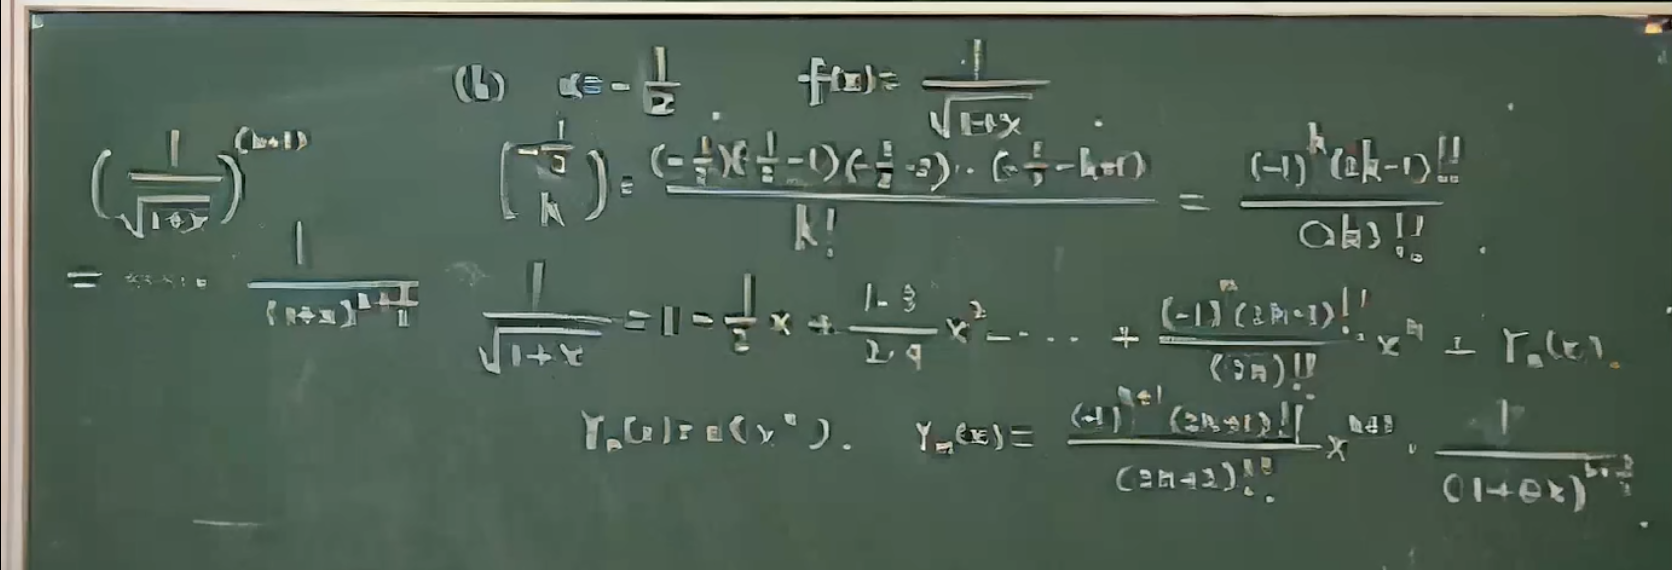 (b) α = -1/2 f(x) = 1/√(1+x)
(1/√(1+x))^(n+1)
(-1/2 k) = (-1/2)(-1/2-1)(-1/2-2)··(-1/2-k+1)/k! = (-1)^k (2k-1)!!/(2k)!!
= ······ 1/(1+x)
1/√(1+x) = 1 - 1/2 x + 1·3/2·4 x² - ··· + (-1)^n (2n-1)!!/(2n)!! · x^n + r_n(x).
r_n(x) = o(x^n). r_n(x) = (-1)^(n+1) (2n+1)!!/(2n+2)!! x^(n+1) · 1/(1+θx)